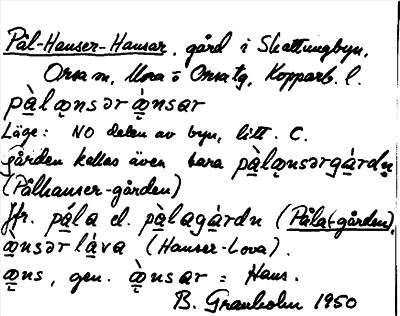 Pål-Hanser-Hansar, gård i Skattungbyn,
Orsa sn, Mora o Orsa tg, Kopparb. l.
pàlǫnsər ǫ̀nsar
Läge: NO delen av byn, litt. C.
Gården kallas även bara pàlǫnsərgàrdn
(Pålhanser-gården)
Jfr. påla el. pàlagàrdn (Påla(-gården),
ǫnsər làva (Hanser-Lova).
ǫns, gen. ǫ̀nsar = Hans.
B. Granholm 1950